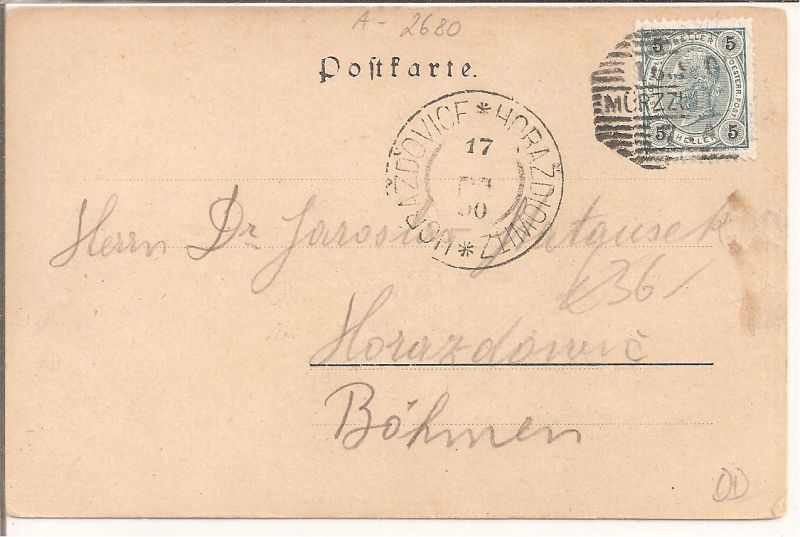 A-2680
Postkarte.
5 HELLER 5
OESTERR. POST
5 HELLER 5
MÜRZZU
HORAŽĎOVICE * HORAŽDOWITZ *
17
00
Herrn Dr Jaroslav
č 36/
Horazdowič
Böhmen